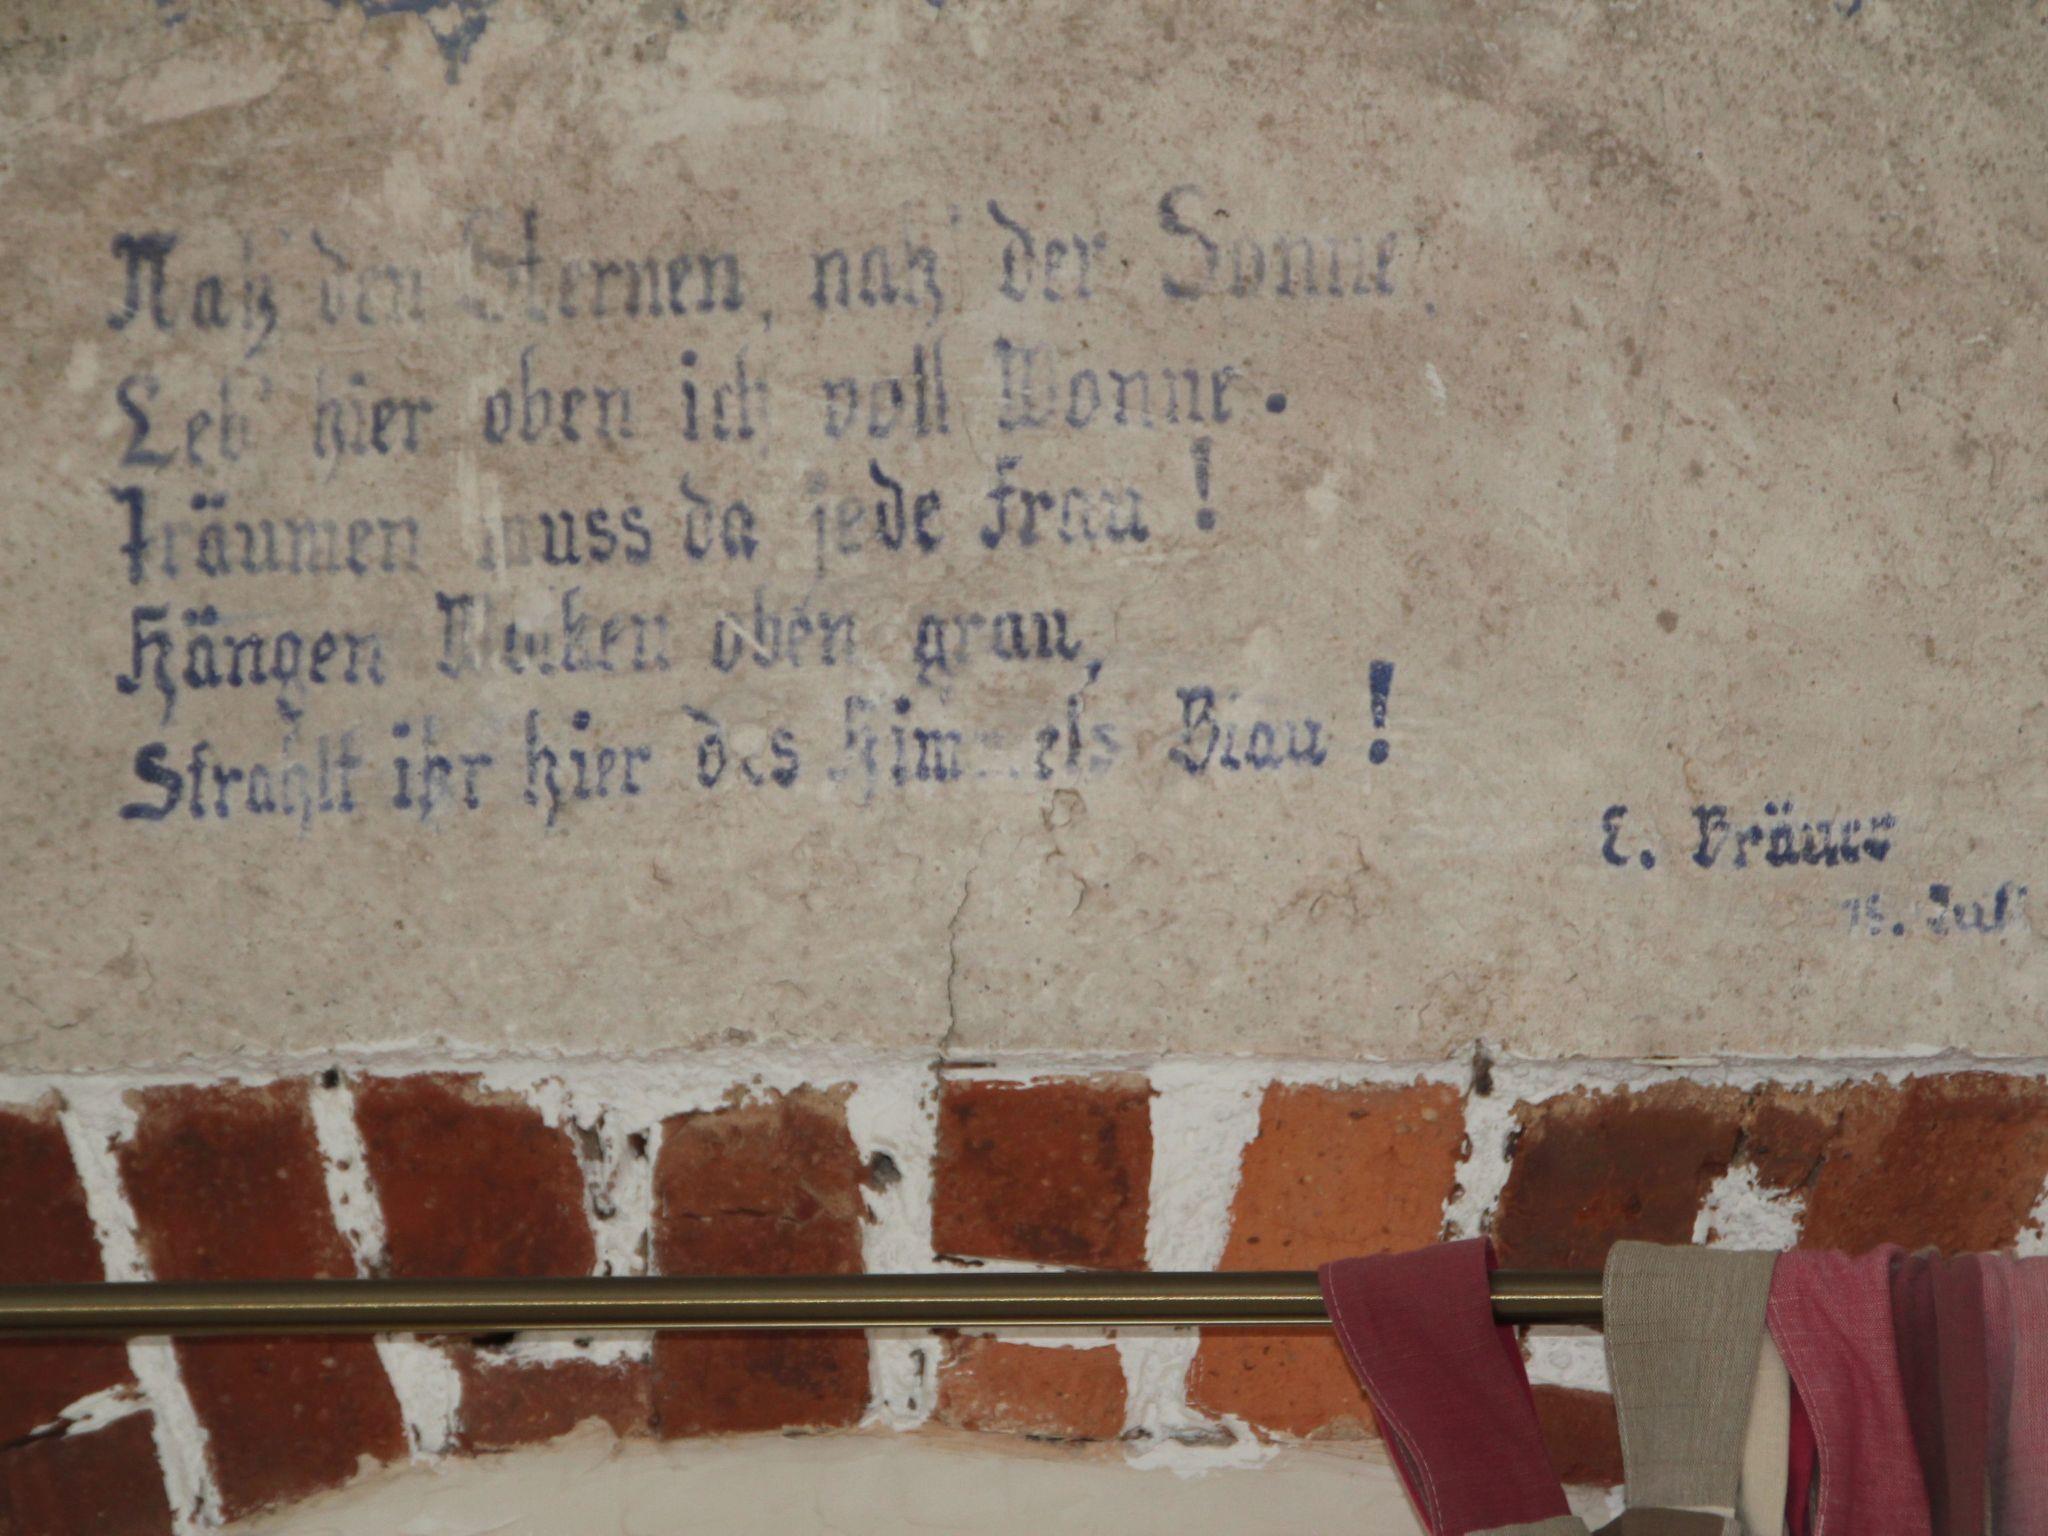 Nah' den Sternen, nah' der Sonne,
Leb' hier oben ich voll Wonne.
Träumen muss da jede Frau!
Hängen Wolken oben grau,
Strahlt ihr hier des Himmels Blau!
E.
15. Juli